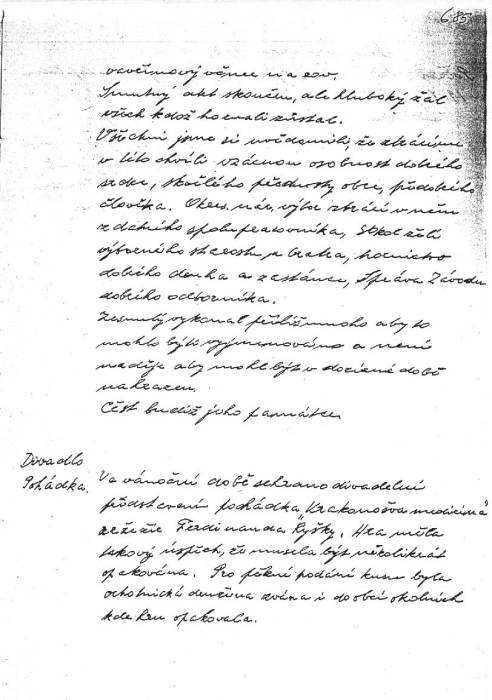 685
vavřínový věnec na rov.
Smutný akt skončen, ale hluboký žal
všech kdož ho znali zůstal.
Všichni jsme si uvědomili, že ztrácíme
v této chvíli vzácnou osobnost dobrého
srdce, skvělého přednosty obce, předobrého
člověka. Okres. nár. výbor ztrácí v něm
zdatného spolupracovníka, Sokol želí
výborného starostu, a bratra, hasičstvo
dobrého druha a zastánce, Správa Závodu
dobrého odborníka.
Zesnulý vykonal příliš mnoho aby to
mohlo být vyjmenováno a není
naděje aby mohl být v dozírné době
nahrazen.
Čest budiž jeho památce.
Divadlo
Pohádka.
Ve vánoční době sehráno divadelní
představení pohádka "Krakonošova medicína"
režie Ferdinanda Ryšky. Hra měla
takový úspěch, že musela být několikrát
opakována. Pro pěkné podání kusu byla
ochotnická družina zvána i do obcí okolních
kde hru opakovala.